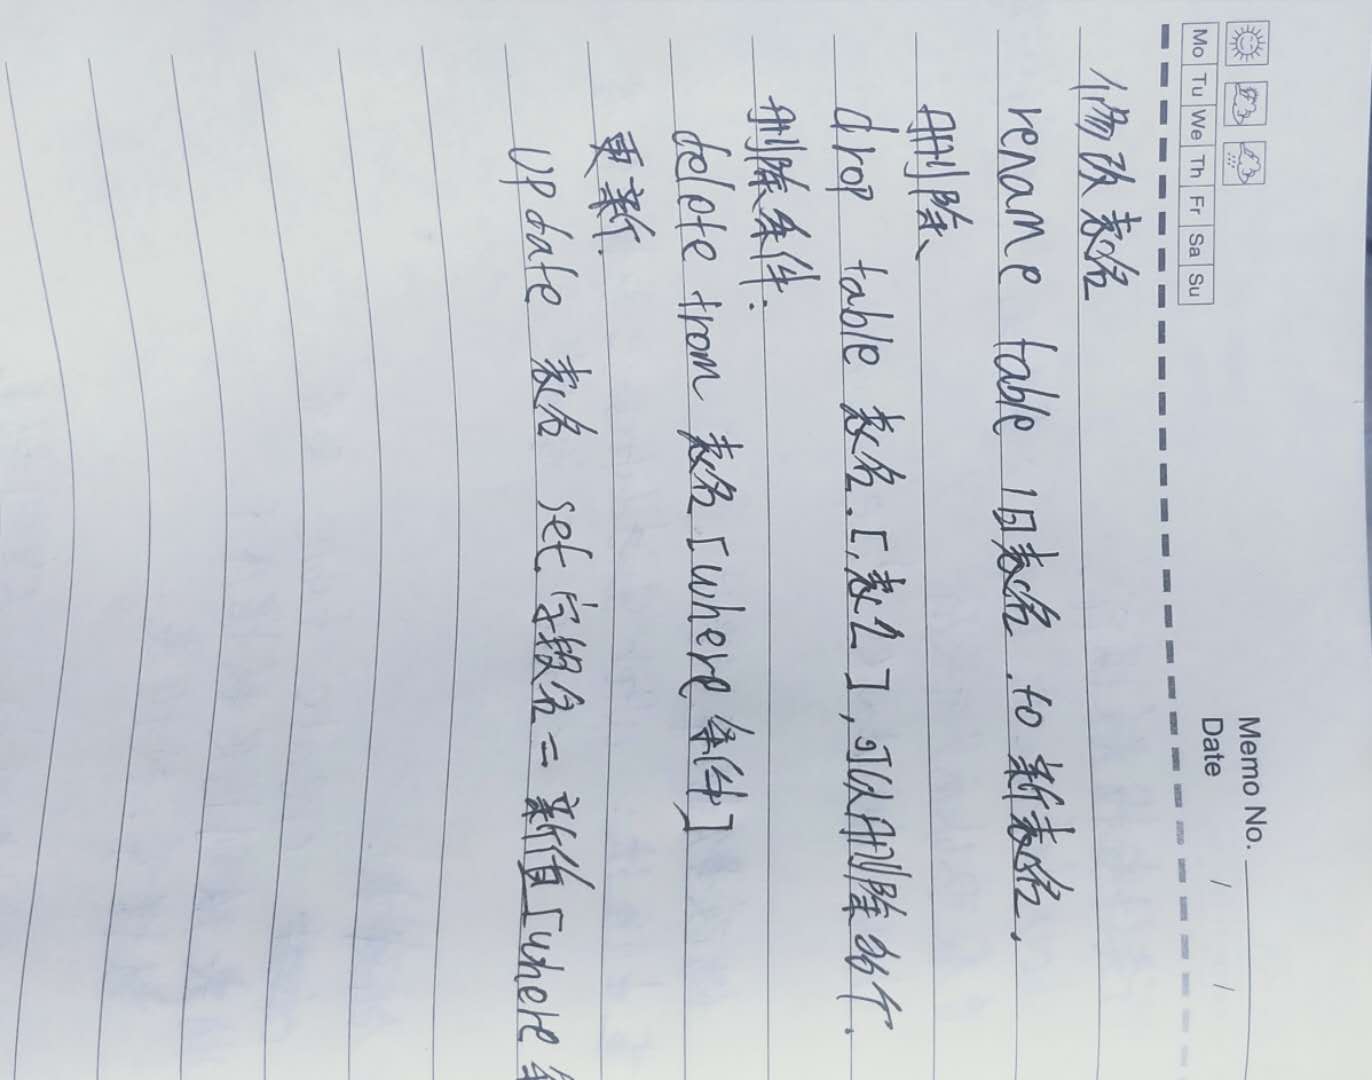 Memo No.
Mo Tu We Th Fr Sa Su
Date / /
修改表名
rename table 旧表名.to 新表名.
删除、
drop table 表名.[,表名],可以删除多个.
删除条件:
delete from 表名[where 条件]
更新.
update 表名 set.字段名=新值[where